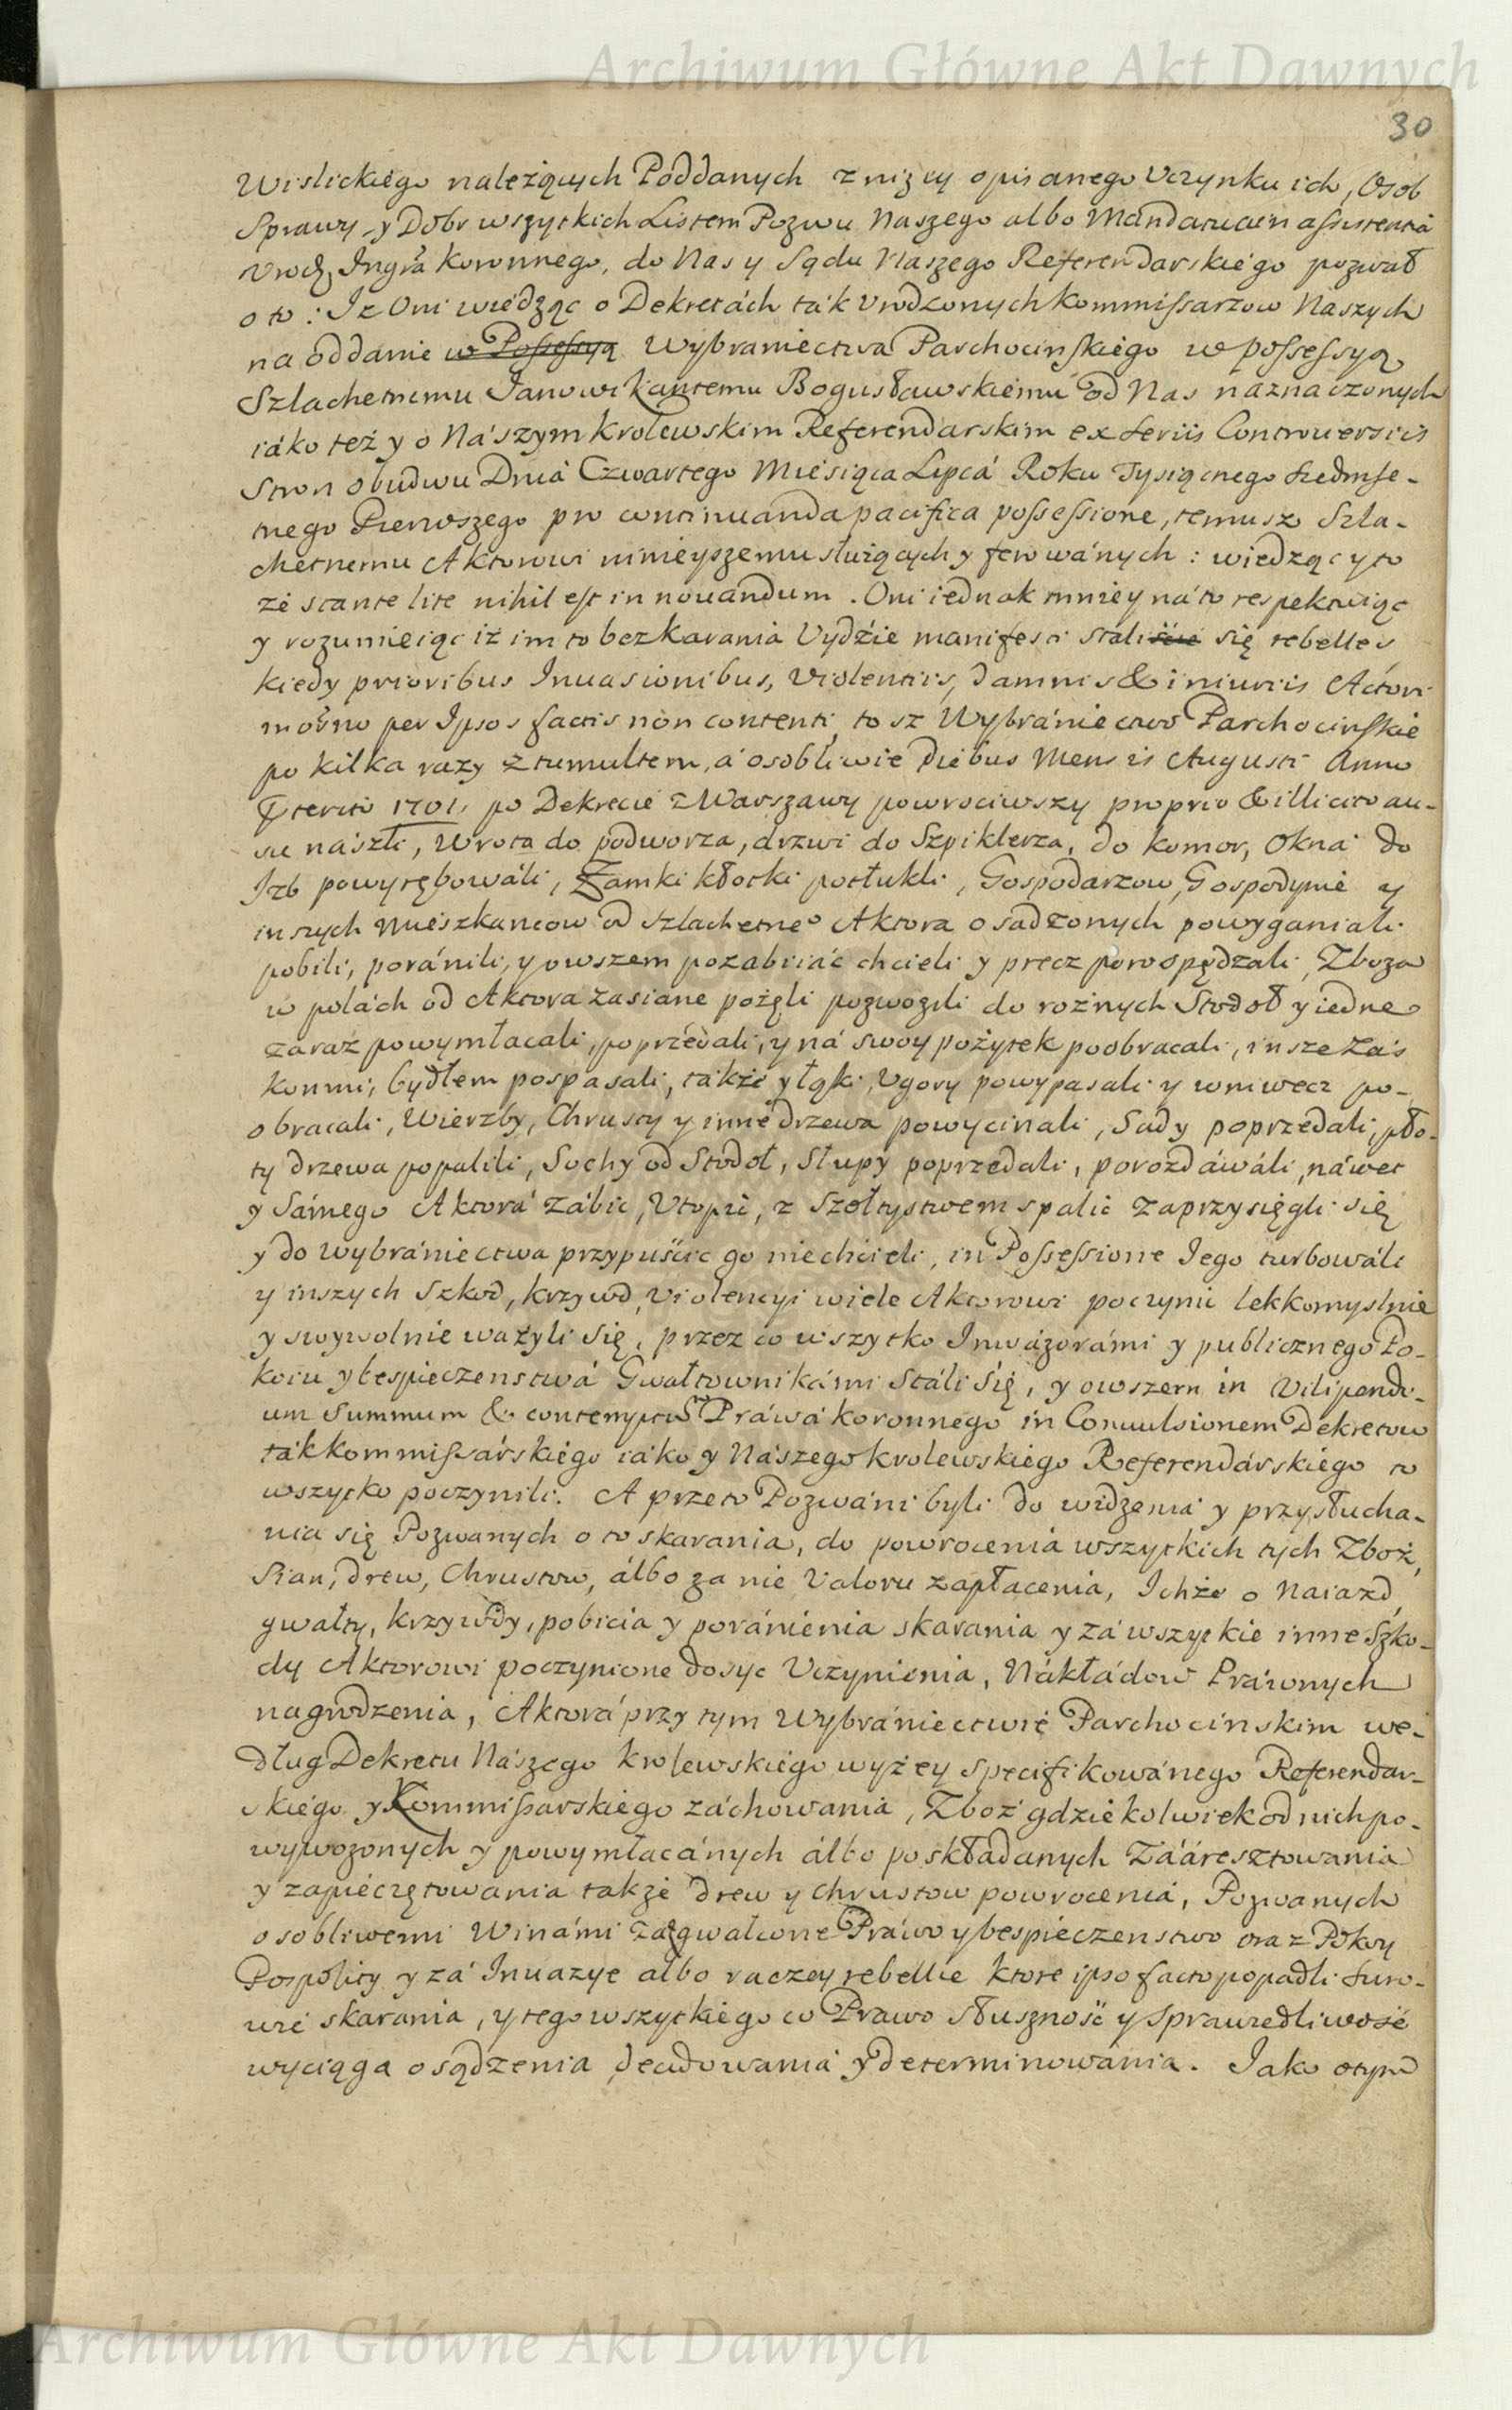 Archiwum Główne Akt Dawnych
30
Wislickiego należących Poddanych z niżey opisanego Uczynku ich, Osob
Sprawy, y Dobr wszytkich Listem Pozwu Naszego albo Mandatu cum assistentia
Urodz. Ingra Koronnego, do Nas y Sądu Naszego Referendarskiego pozwał
o to: Iż Oni wiedząc o Dekretách ták Urodzonych Kommissarzow Naszych
na oddanie w Possessyą Wybraniectwa Parchocinskiego w possessyą
Szlachetnemu Janowi Kantemu Bogusławskiemu od Nas naznaczonych
iáko też y o Nászym Krolewskim Referendarskim ex seriis Controversiis
Stron obudwu Dniá Czwartego Miesiąca Lipcá Roku Tysiącnego siedmse-
tnego Pierwszego pro continuanda pacifica possessione, temusz Szla-
chetnemu Aktorowi ninieyszemu służących y ferowánych: wiedzący to
że stante lite nihil est innovandum. Oni iednak mniey ná to respektuiąc
y rozumieiąc iż im to bez karania Uydźie manifesti stáli się rebelles
kiedy prioribus Invasionibus, Violentiis, damnis & iniuriis Actori
moderno per Ipsos factis non contenti, to sz Wybrániectwo Parchocinskie
po kilka razy z tumultem, á osobliwie Diebus Mensis Augusti Anno
Pterito 1701, po Dekrecie z Warszawy powrociwszy proprio & illicito au-
su nászli, Wrota do podworza, drzwi do Szpiklerza, do komor, Okna do
Izb powyrębowáli, Zamki kłotki potłukli, Gospodarzow, Gospodynie y
inszych Mieszkancow od szlachetneo Aktora osadzonych powyganiali
pobili, poránili, y owszem pozabiiáć chcieli y precz porospędzali, Zboza
w polách od Aktora zasiane pożęli pozwozili do rożnych Stodoł y iedne
zaraz powymłacali, poprzedali, y ná swoy pożytek poobracali, insze zaś
konmi, bydłem pospasali, także y łąki, Ugory powypasali y wniwecz po-
obracali, Wierzby, Chrusty y inne drzewa powycinali, Sady poprzedali, pło-
ty drzewa popalili, Sochy od Stodoł, Słupy poprzedali, porozdáwáli, náwet
y Sámego Aktorá zábić, Utopić, z Szołtystwem spalić zaprzysięgli się
y do wybrániectwa przypuśćić go niechcieli, in Possessione Jego turbowáli
y inszych Szkod, krzywd, Violencyi wiele Aktorowi poczynić lekkomyslnie
y swywolnie ważyli się, przez co wszytko Inwázorámi y publicznego Po-
koiu y bespieczenstwá Gwałtownikámi stáli się, y owszem in Vilipendi-
um summum & contemptum Práwá koronnego in Convulsionem Dekretow
ták kommissárskiego iáko y Nászego krolewskiego Referendárskiego to
wszytko poczynili. A przeto Pozwáni byli do widzeniá y przysłucha-
nia się Pozwanych o to skarania, do powrocenia wszytkich tych Zboż,
Sian, drew, Chrustow, álbo za nie Valoru zapłacenia, Ichże o naiazd
gwałty, krzywdy, pobicia y poránienia skarania y zá wszytkie inne Szko-
dy Aktorowi poczynione dosyc Uczynienia, Nákłádow Práwnych
nagrodzenia, Aktorá przy tym Wybrániectwie Parchocinskim we-
dług Dekretu Nászego krolewskiego wyżey specifikowánego Referendar-
skiego y Kommissarskiego záchowania, Zboż gdziekolwiek od nich po-
wywozonych y powymłacánych álbo poskładanych Záárésztowania
y zapieczętowania także drew y chrustow powrocenia, Pozwanych
osobliwemi Winámi za zgwałcone Práwo y bespieczenstwo oraz Pokoy
Pospolity y zá Inuazye albo raczey rebellie ktore ipso facto popadli suro-
wie skarania, y tego wszytkiego co Prawo słuszność y sprawiedliwość
wyciąga osądzenia decidowaniá y determinowania. Jako o tym
Archiwum Główne Akt Dawnych